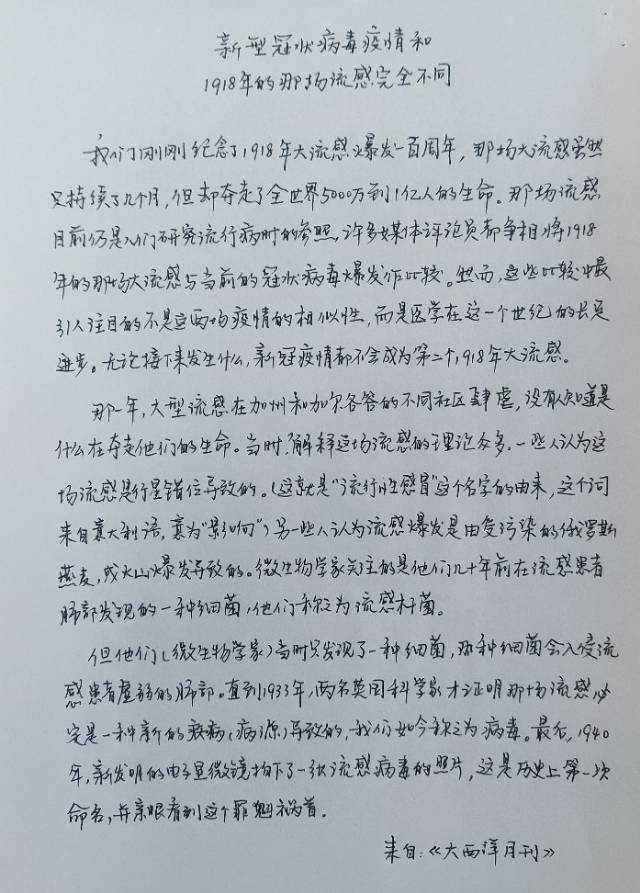 新型冠状病毒疫情和
1918年的那场流感完全不同
我们刚刚纪念了1918年大流感爆发一百周年，那场大流感虽然
只持续了几个月，但却夺走了全世界5000万到1亿人的生命。那场流感
目前仍是人们研究流行病时的参照。许多媒体评论员都争相将1918
年的那场大流感与当前的冠状病毒爆发作比较。然而，这些比较中最
引人注目的不是这两场疫情的相似性，而是医学在这一个世纪的长足
进步。无论接下来发生什么，新冠疫情都不会成为第二个1918年大流感。
那一年，大型流感在加州和加尔各答的不同社区肆虐，没有人知道是
什么在夺走他们的生命。当时，解释这场流感的理论众多，一些人认为这
场流感是行星错位导致的。（这就是“流行性感冒”这个名字的由来，这个词
来自意大利语，意为“影响”）另一些人认为流感爆发是由受污染的俄罗斯
燕麦，或火山爆发导致的。微生物学家关注的是他们几十年前在流感患者
肺部发现的一种细菌，他们称之为流感杆菌。
但他们（微生物学家）当时只发现了一种细菌，那种细菌会入侵流
感患者虚弱的肺部。直到1933年，两名英国科学家才证明那场流感，必
定是一种新的疾病（病源）导致的，我们如今称之为病毒。最后，1940
年，新发明的电子显微镜拍下了一张流感病毒的照片，这是历史上第一次
命名，并亲眼看到这个罪魁祸首。
来自：《大西洋月刊》